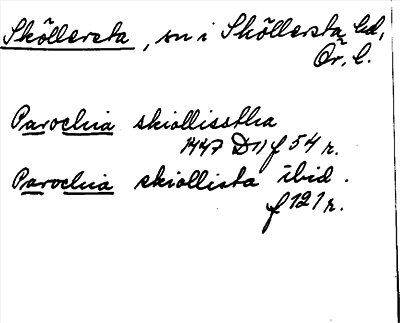 Sköllersta, sn i Sköllersta hd,
Ör. l.
Parochia skiollisstha
1447 D 11 f 54 r.
Parochia skiollista ibid.
f 121 r.